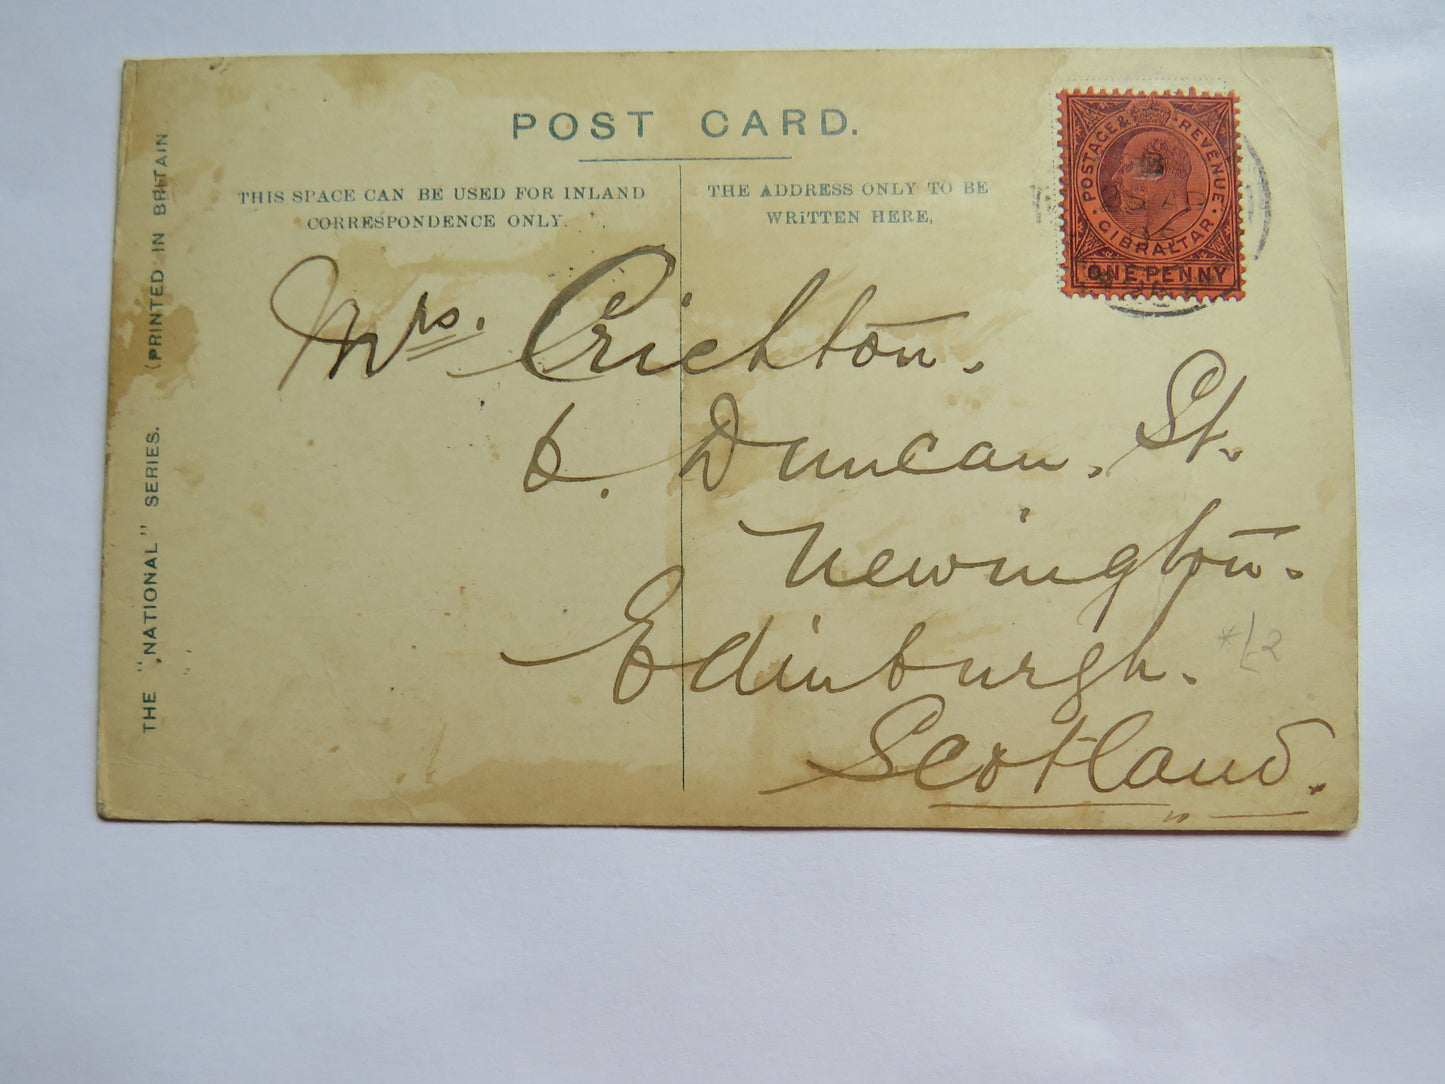 POST CARD.
THIS SPACE CAN BE USED FOR INLAND
CORRESPONDENCE ONLY.
THE ADDRESS ONLY TO BE
WRITTEN HERE,
POSTAGE & REVENUE
GIBRALTAR
ONE PENNY
B
Mrs. Crichton.
6. Duncan. St.
Newington.
Edinburgh.
Scotland.
*/£2
THE "NATIONAL" SERIES. (PRINTED IN BRITAIN